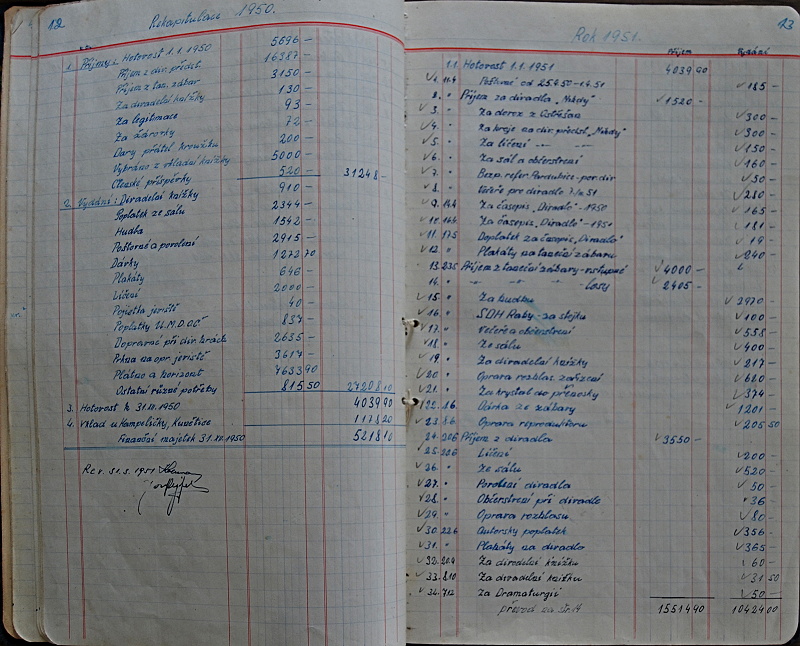 12 Rekapitulace 1950.
1. Příjmy: Hotovost 1.1.1950 5696 –
Příjem z div. předst. 16387 –
Příjem z tan. zábav 3150 –
Za divadelní knížky 130 –
Za legitimace 93 –
Za žárovky 72 –
Dary přátel kroužku 200 –
Vybráno z vkladní knížky 5000 –
Členské příspěvky 520 – 31248 –
2. Vydání: Divadelní knížky 910 –
Poplatek ze sálu 2344 –
Hudba 1542 –
Poštovné a povolení 2915 –
Dárky 1272 70
Plakáty 646 –
Líčení 2000 –
Pojistka jeviště 40 –
Poplatky Ú.M.D.O.Č. 837 –
Dopravné při div. hrách 2635 –
Prkna na opr. jeviště 3617 –
Plátno a horizont 7633 90
Ostatní různé potřeby 815 50 27208 10
3. Hotovost k 31.XII.1950 4039 90
4. Vklad u Kampeličky, Kunětice 1178 20
Finanční majetek 31.XII.1950 5218 10
Rev. 31.3.1951
Rok 1951. 13
Příjem Vydání
1.1. Hotovost 1.1.1951 4039 90
1. 11.4 Poštovné od 25.9.50–1.4.51 185 –
2. " Příjem za divadlo „Někdy" 1520 –
3. " Za dovoz z Ostřešan 300 –
4. " Za kroje na div. předst. „Někdy" 300 –
5. " Za líčení – " – – " – 150 –
6. " Za sál a občerstvení 160 –
7. " Bezp. refer. Pardubice - pov. div. 50 –
8. " Večeře pro divadlo 7/IV 51 280 –
9. 14.4 Za časopis „Divadlo" – 1950 165 –
10. 14.4. Za časopis „Divadlo" – 1951 181 –
11. 17.5 Doplatek za časopis „Divadlo" 19 –
12. " Plakáty na taneční zábavu 240 –
13. 23.5 Příjem z taneční zábavy - vstupné 4000 –
14. " – " – – " – losy 2405 –
15. " Za hudbu 2970 –
16. " SDH Raby - za stojku 100 –
17. " Večeře a občerstvení 558 –
18. " Ze sálu 400 –
19. " Za divadelní knížky 217 –
20. " Oprava rozhlas. zařízení 620 –
21. " Za krystal do přenosky 374 –
22. 8.6. Dávka ze zábavy 1201 –
23. 8.6. Oprava reproduktoru 205 50
24. 20.6 Příjem z divadla 3550 –
25. 22.6 Líčení 200 –
26. " Ze sálu 520 –
27. " Povolení divadla 50 –
28. " Občerstvení při divadle 36 –
29. " Oprava rozhlasu 80 –
30. 22.6 Autorský poplatek 356 –
31. " Plakáty na divadlo 365 –
32. 20.9 Za divadelní knížku 60 –
33. 8.10 Za divadelní knížku 31 50
34. 7.12 Za Dramaturgii 50 –
převod na str. 14 15514 90 10424 00